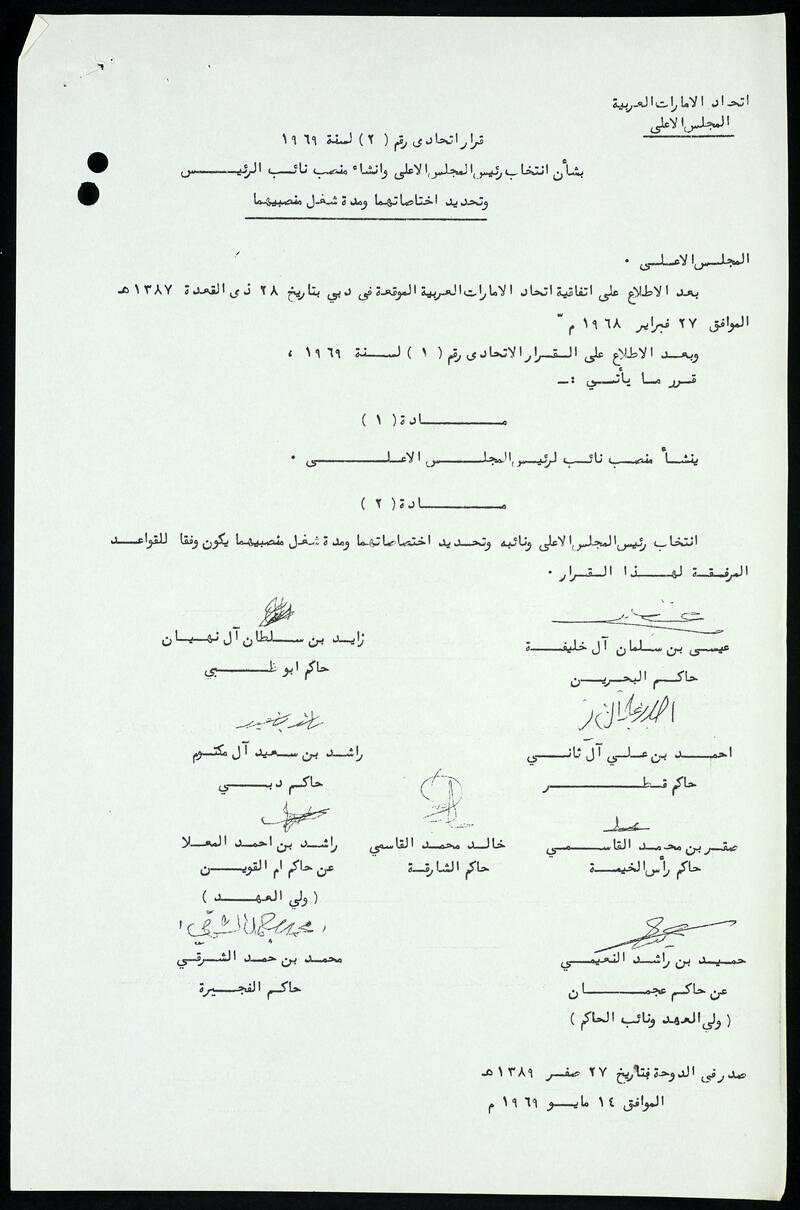 اتحاد الامارات العربية
المجلس الاعلى
قرار اتحادى رقم ( ٢ ) لسنة ١٩٦٩
بشأن انتخاب رئيس المجلس الاعلى وانشاء منصب نائب الرئيس
وتحديد اختصاصاتهما ومدة شغل منصبيهما
المجلس الاعلى ٠
بعد الاطلاع على اتفاقية اتحاد الامارات العربية الموقعة فى دبي بتاريخ ٢٨ ذى القعدة ١٣٨٧هـ
الموافق ٢٧ فبراير ١٩٦٨ م
وبعد الاطلاع على القرار الاتحادى رقم ( ١ ) لسنة ١٩٦٩ ،
قرر ما يأتي :ـ
مادة ( ١ )
ينشأ منصب نائب لرئيس المجلس الاعلى ٠
مادة ( ٢ )
انتخاب رئيس المجلس الاعلى ونائبه وتحديد اختصاصاتهما ومدة شغل منصبيهما يكون وفقا للقواعد
المرفقة لهذا القرار ٠
عيسى بن سلمان آل خليفة
حاكم البحرين
زايد بن سلطان آل نهيان
حاكم ابو ظبي
احمد بن علي آل ثاني
حاكم قطر
راشد بن سعيد آل مكتوم
حاكم دبي
صقر بن محمد القاسمي
حاكم رأس الخيمة
خالد محمد القاسمي
حاكم الشارقة
راشد بن احمد المعلا
عن حاكم ام القوين
( ولي العهد )
حميد بن راشد النعيمي
عن حاكم عجمان
( ولي العهد ونائب الحاكم )
محمد بن حمد الشرقي
حاكم الفجيرة
صدر فى الدوحة بتاريخ ٢٧ صفر ١٣٨٩هـ
الموافق ١٤ مايو ١٩٦٩ م